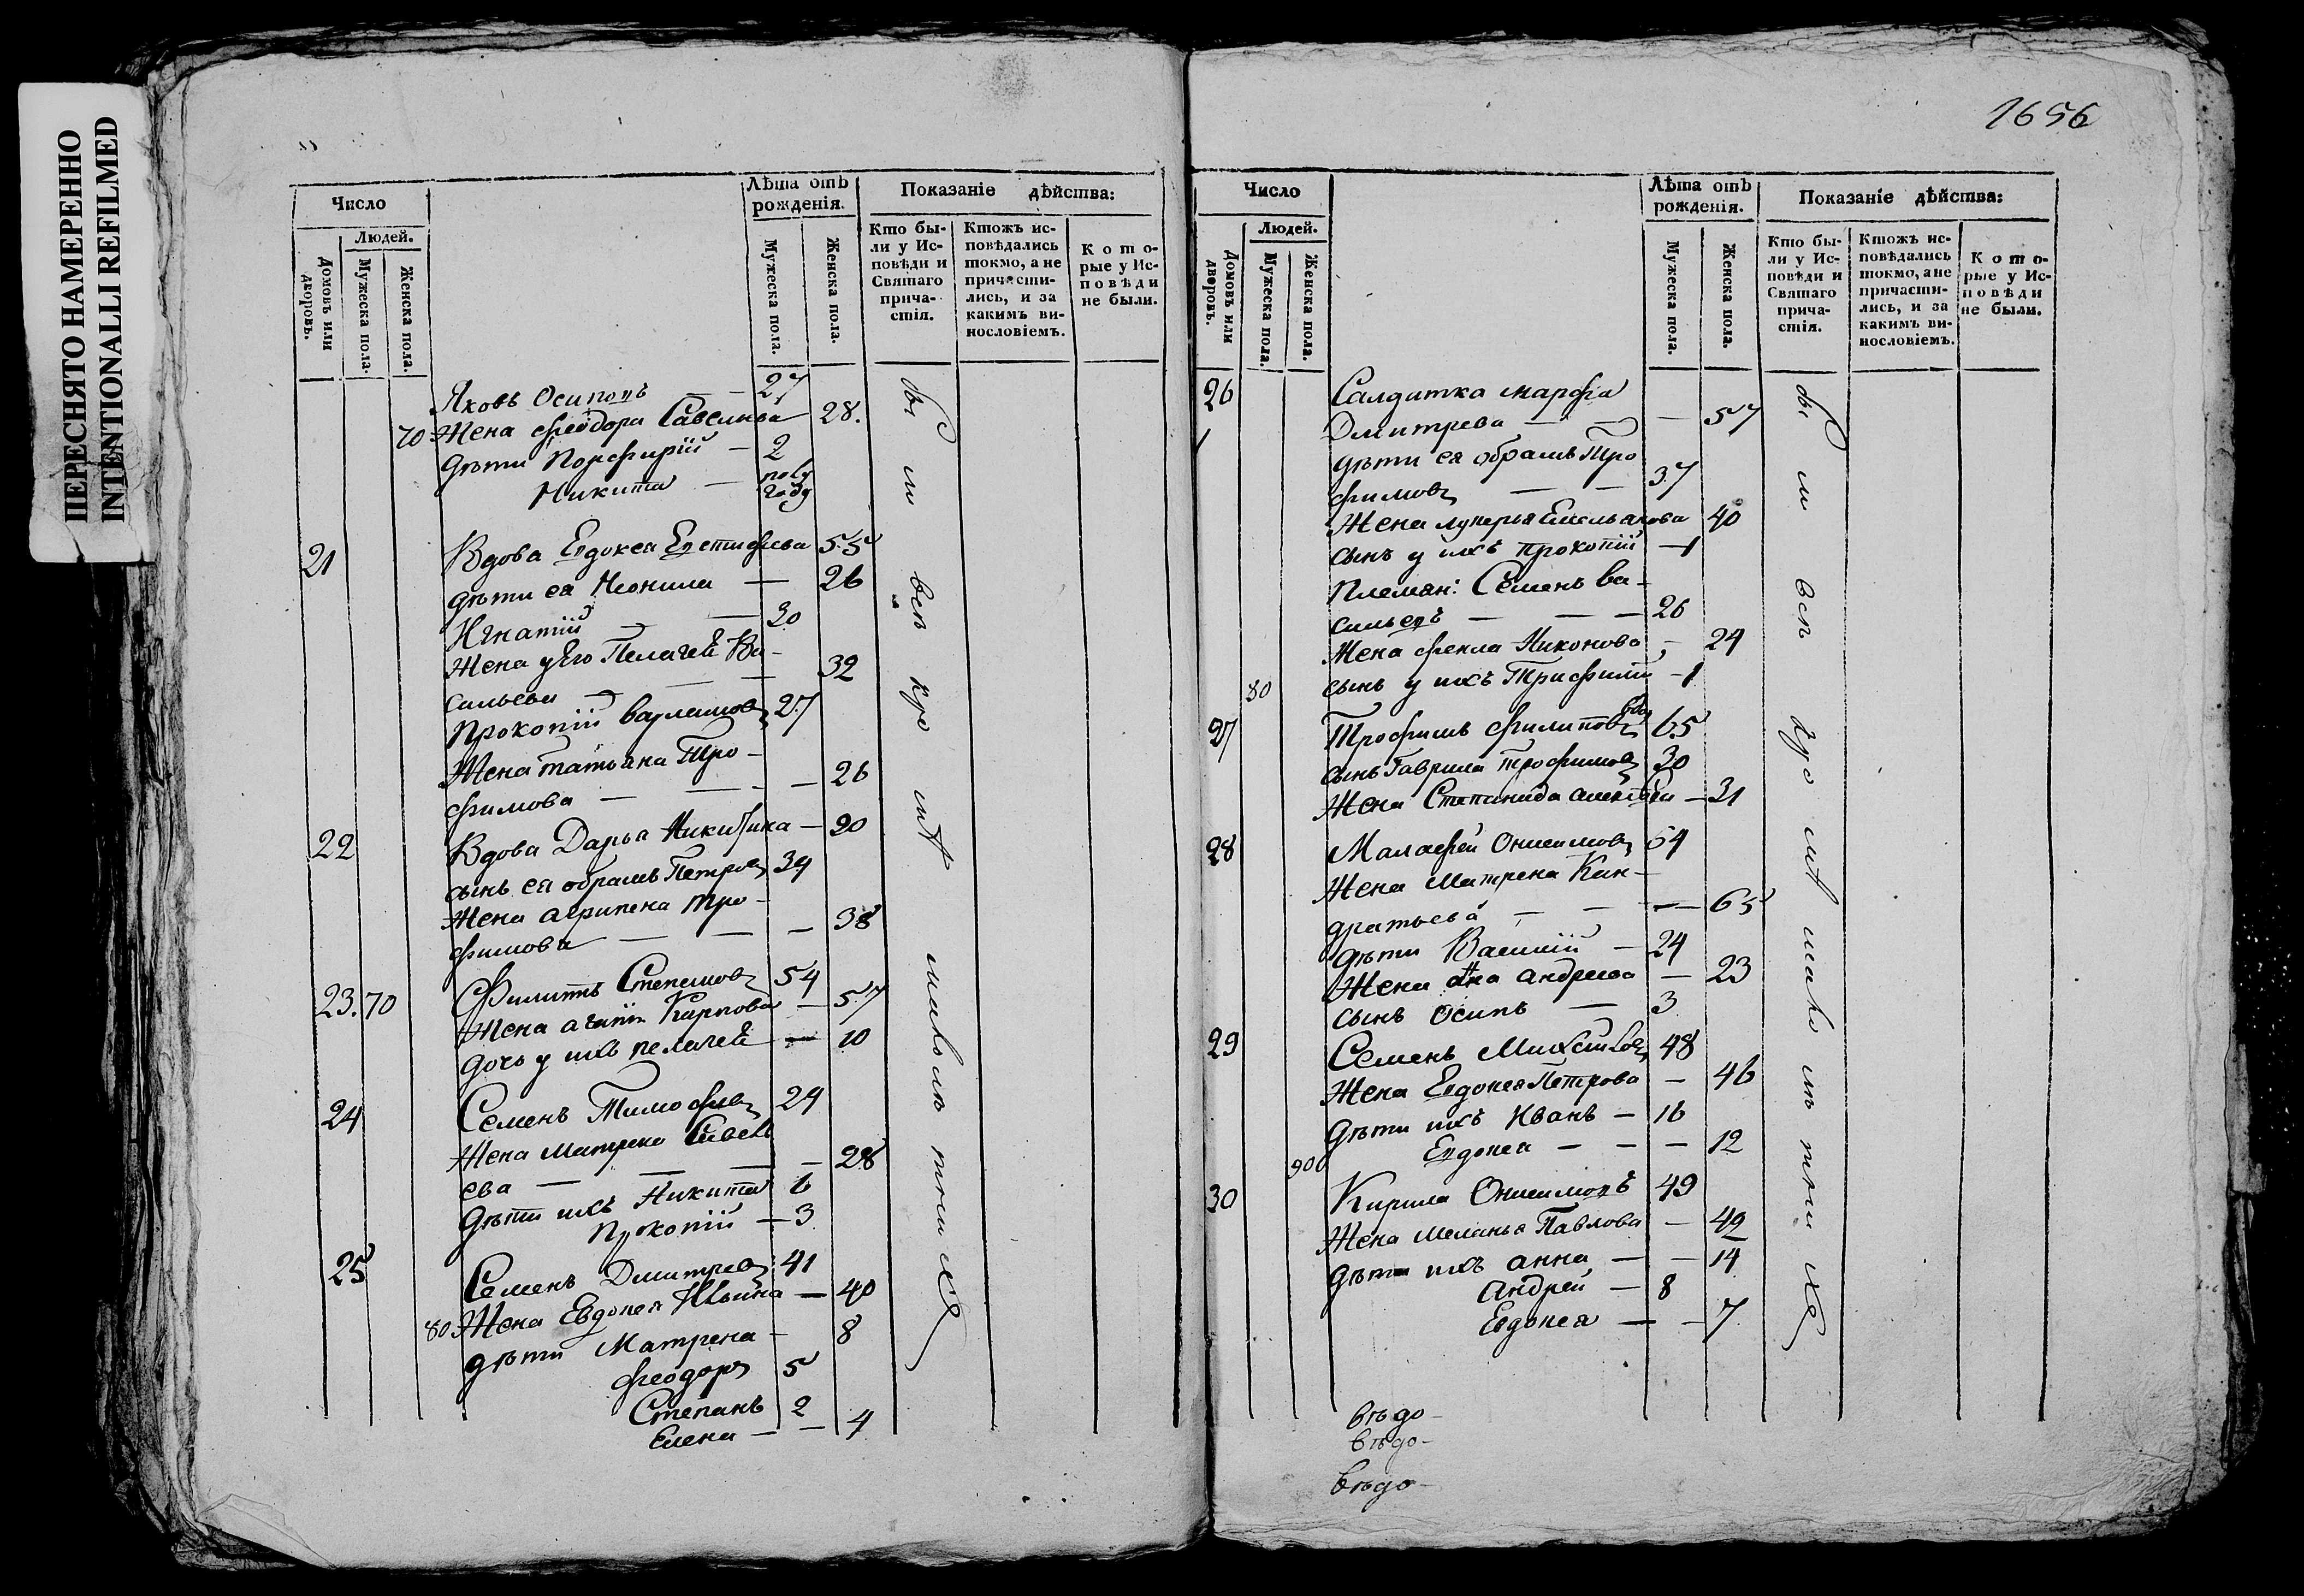 ПЕРЕСНЯТО НАМЕРЕННО
INTENTIONALLI REFILMED
Число
Людей.
Домовъ или дворовъ.
Мужеска пола.
Женска пола.
Лѣта отъ рожденія.
Мужеска пола.
Женска пола.
Показаніе дѣйства:
Кто бы-
ли у Ис-
повѣди и
Святаго
прича-
стія.
Ктожъ ис-
повѣдались
токмо, а не
причасти-
лись, и за
какимъ ви-
нословіемъ.
К о т о-
рые у Ис-
п о в ѣ д и
не были.
Яковъ Осиповъ — 27
70 Жена Феодора Савельева 28.
дѣти Порфирій — 2
Никита — полу году
21 Вдова Евдокея Евстифѣева 55
дѣти ея Неонила — 26
Игнатій — 30
Жена у Его Пелагеѣ Ва-
сильева — 32
Прокопій Варламовъ 27
Жена Татьяна Тро-
фимова — 26
22 Вдова Дарья Никитина — 90
сынъ ея Абрамъ Петровъ 39
Жена Агрипена Тро-
фимова — 38
23. 70 Филипъ Степановъ 54
Жена Карпова — 57
дочь у ихъ пелагеѣ — 10
24 Семенъ Тимофѣевъ 29
Жена Матрена Савель
ева — 28
дѣти ихъ Никита 6
Прокопій — 3
25 Семенъ Дмитревъ 41
80 Жена Евдокея Ильина — 40
дѣти Матрена — 8
Феодоръ 5
Степанъ 2
Елена — 4
бы ли всѣ кро мѣ малолѣ тнихъ
1656
Число
Людей.
Домовъ или дворовъ.
Мужеска пола.
Женска пола.
Лѣта отъ рожденія.
Мужеска пола.
Женска пола.
Показаніе дѣйства:
Кто бы-
ли у Ис-
повѣди и
Святаго
прича-
стія.
Ктожъ ис-
повѣдались
токмо, а не
причасти-
лись, и за
какимъ ви-
нословіемъ.
К о т о-
рые у Ис-
п о в ѣ д и
не были.
26 Салдатка Марфа
Дмитрева — 57
дѣти ея Абрамъ Тро
фимовъ — 37
Жена лукерья Емельянова 40
сынъ у ихъ Прокопій — 1
Племян: Семенъ Ва-
сильевъ — 26
Жена Фекла Никонова — 24
80 сынъ у ихъ Трифилій — 1
27 Трофимъ Филиповъ 65
сынъ Гаврила Трофимовъ 30
Жена Степанида — 31
28 Малафей Онисимовъ 64
Жена Матрена Кан-
дратьева — 65
дѣти Василій — 24
Жена Анна Андреева — 23
сынъ Осипъ — 3
29 Семенъ 48
Жена Евдокея Петрова — 46
дѣти ихъ Иванъ — 16
90 Евдокея — 12
30 Кирила Онисимовъ 49
Жена Меланья Павлова — 49
дѣти ихъ Анна — 14
Андрей — 8
Евдокея — 7
бы ли всѣ кро мѣ мало лѣ тнихъ
вѣдо-
вѣдо-
вѣдо-